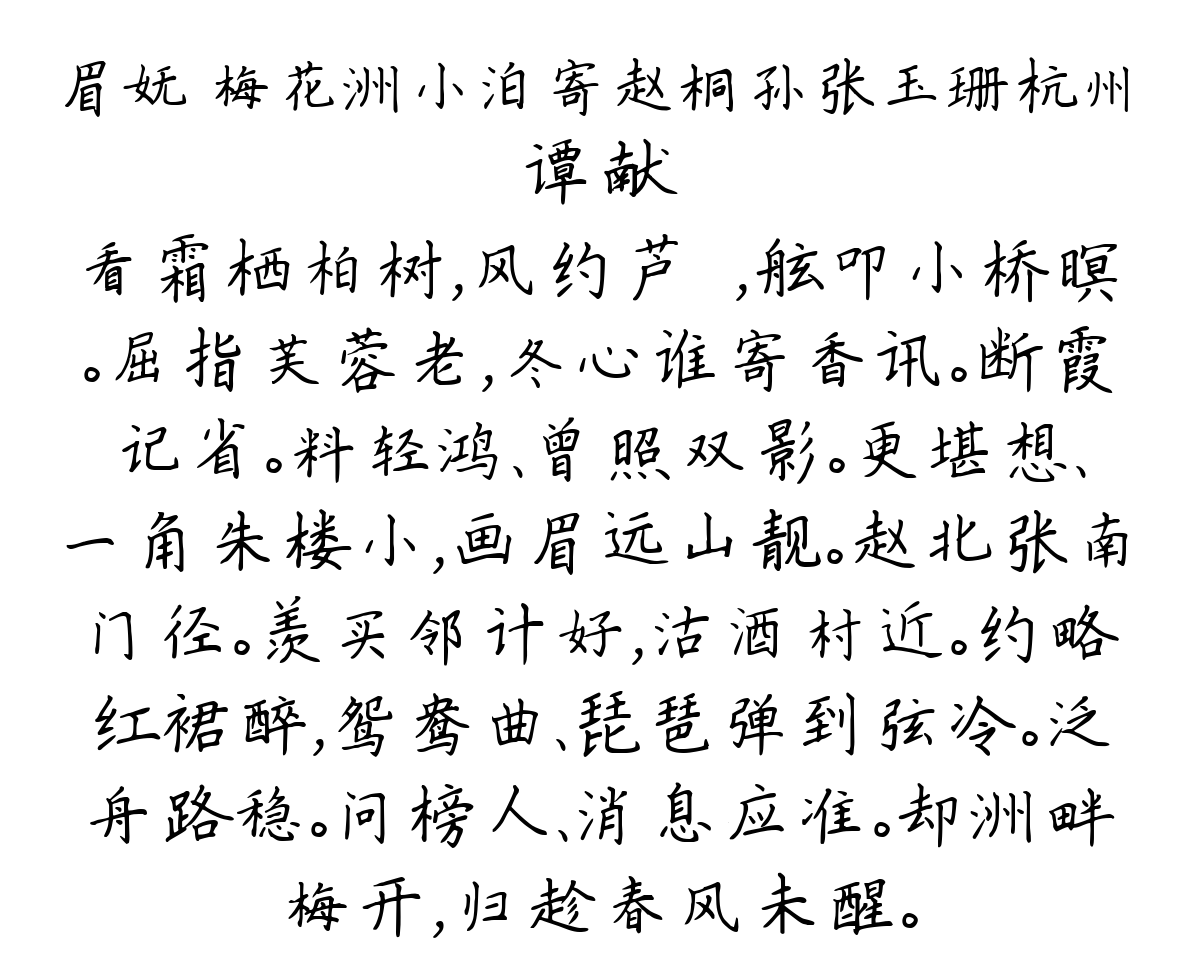 眉妩 梅花洲小泊寄赵桐孙张玉珊杭州
谭献
看霜栖柏树,风约芦 ,舷叩小桥暝
。屈指芙蓉老,冬心谁寄香讯。断霞
记省。料轻鸿、曾照双影。更堪想、
一角朱楼小,画眉远山靓。赵北张南
门径。羡买邻计好,沽酒村近。约略
红裙醉,鸳鸯曲、琵琶弹到弦冷。泛
舟路稳。问榜人、消息应准。却洲畔
梅开,归趁春风未醒。